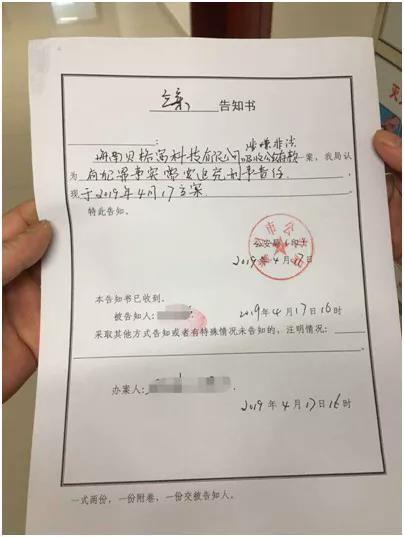 立案 告知书
:
涉嫌非法
海南贝格富科技有限公司吸收公众存款一案，我局认
为有犯罪事实需要追究刑事责任
现于2019年4月17立案。
特此告知。
公安局（印）
2019年4月17日
本告知书已收到。
被告知人： 2019年4月17日16时
采取其他方式告知或者有特殊情况未告知的，注明情况：
办案人：
2019年4月17日16时
一式两份，一份附卷，一份交被告知人。